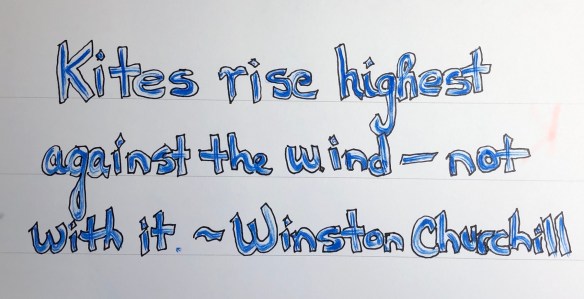 Kites rise highest
against the wind – not
with it. ~ Winston Churchill